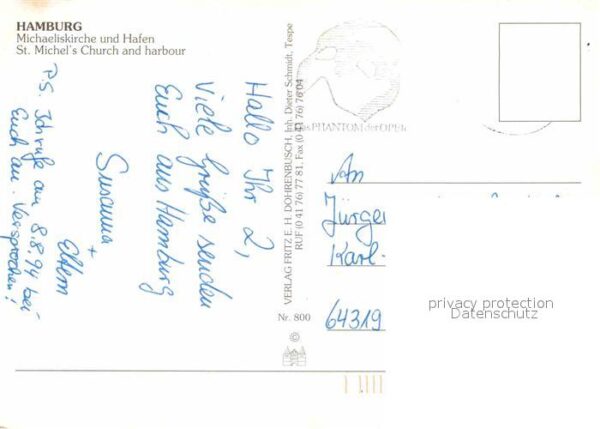 HAMBURG
Michaeliskirche und Hafen
St. Michel's Church and harbour
Hallo Ihr 2,
Viele Grüße senden
Euch aus Hamburg
Susanna
+
Eltern
P.S. Ich rufe am 8.8.94 bei
Euch an. Versprochen!
VERLAG FRITZ E. H. DOHRENBUSCH, Inh. Dieter Schmidt, Tespe
RUF (0 41 76) 77 81. Fax (0 41 76) 76 04
Nr. 800
PHANTOM der OPER
An
Jürgen
Karl-
64319
privacy protection
Datenschutz